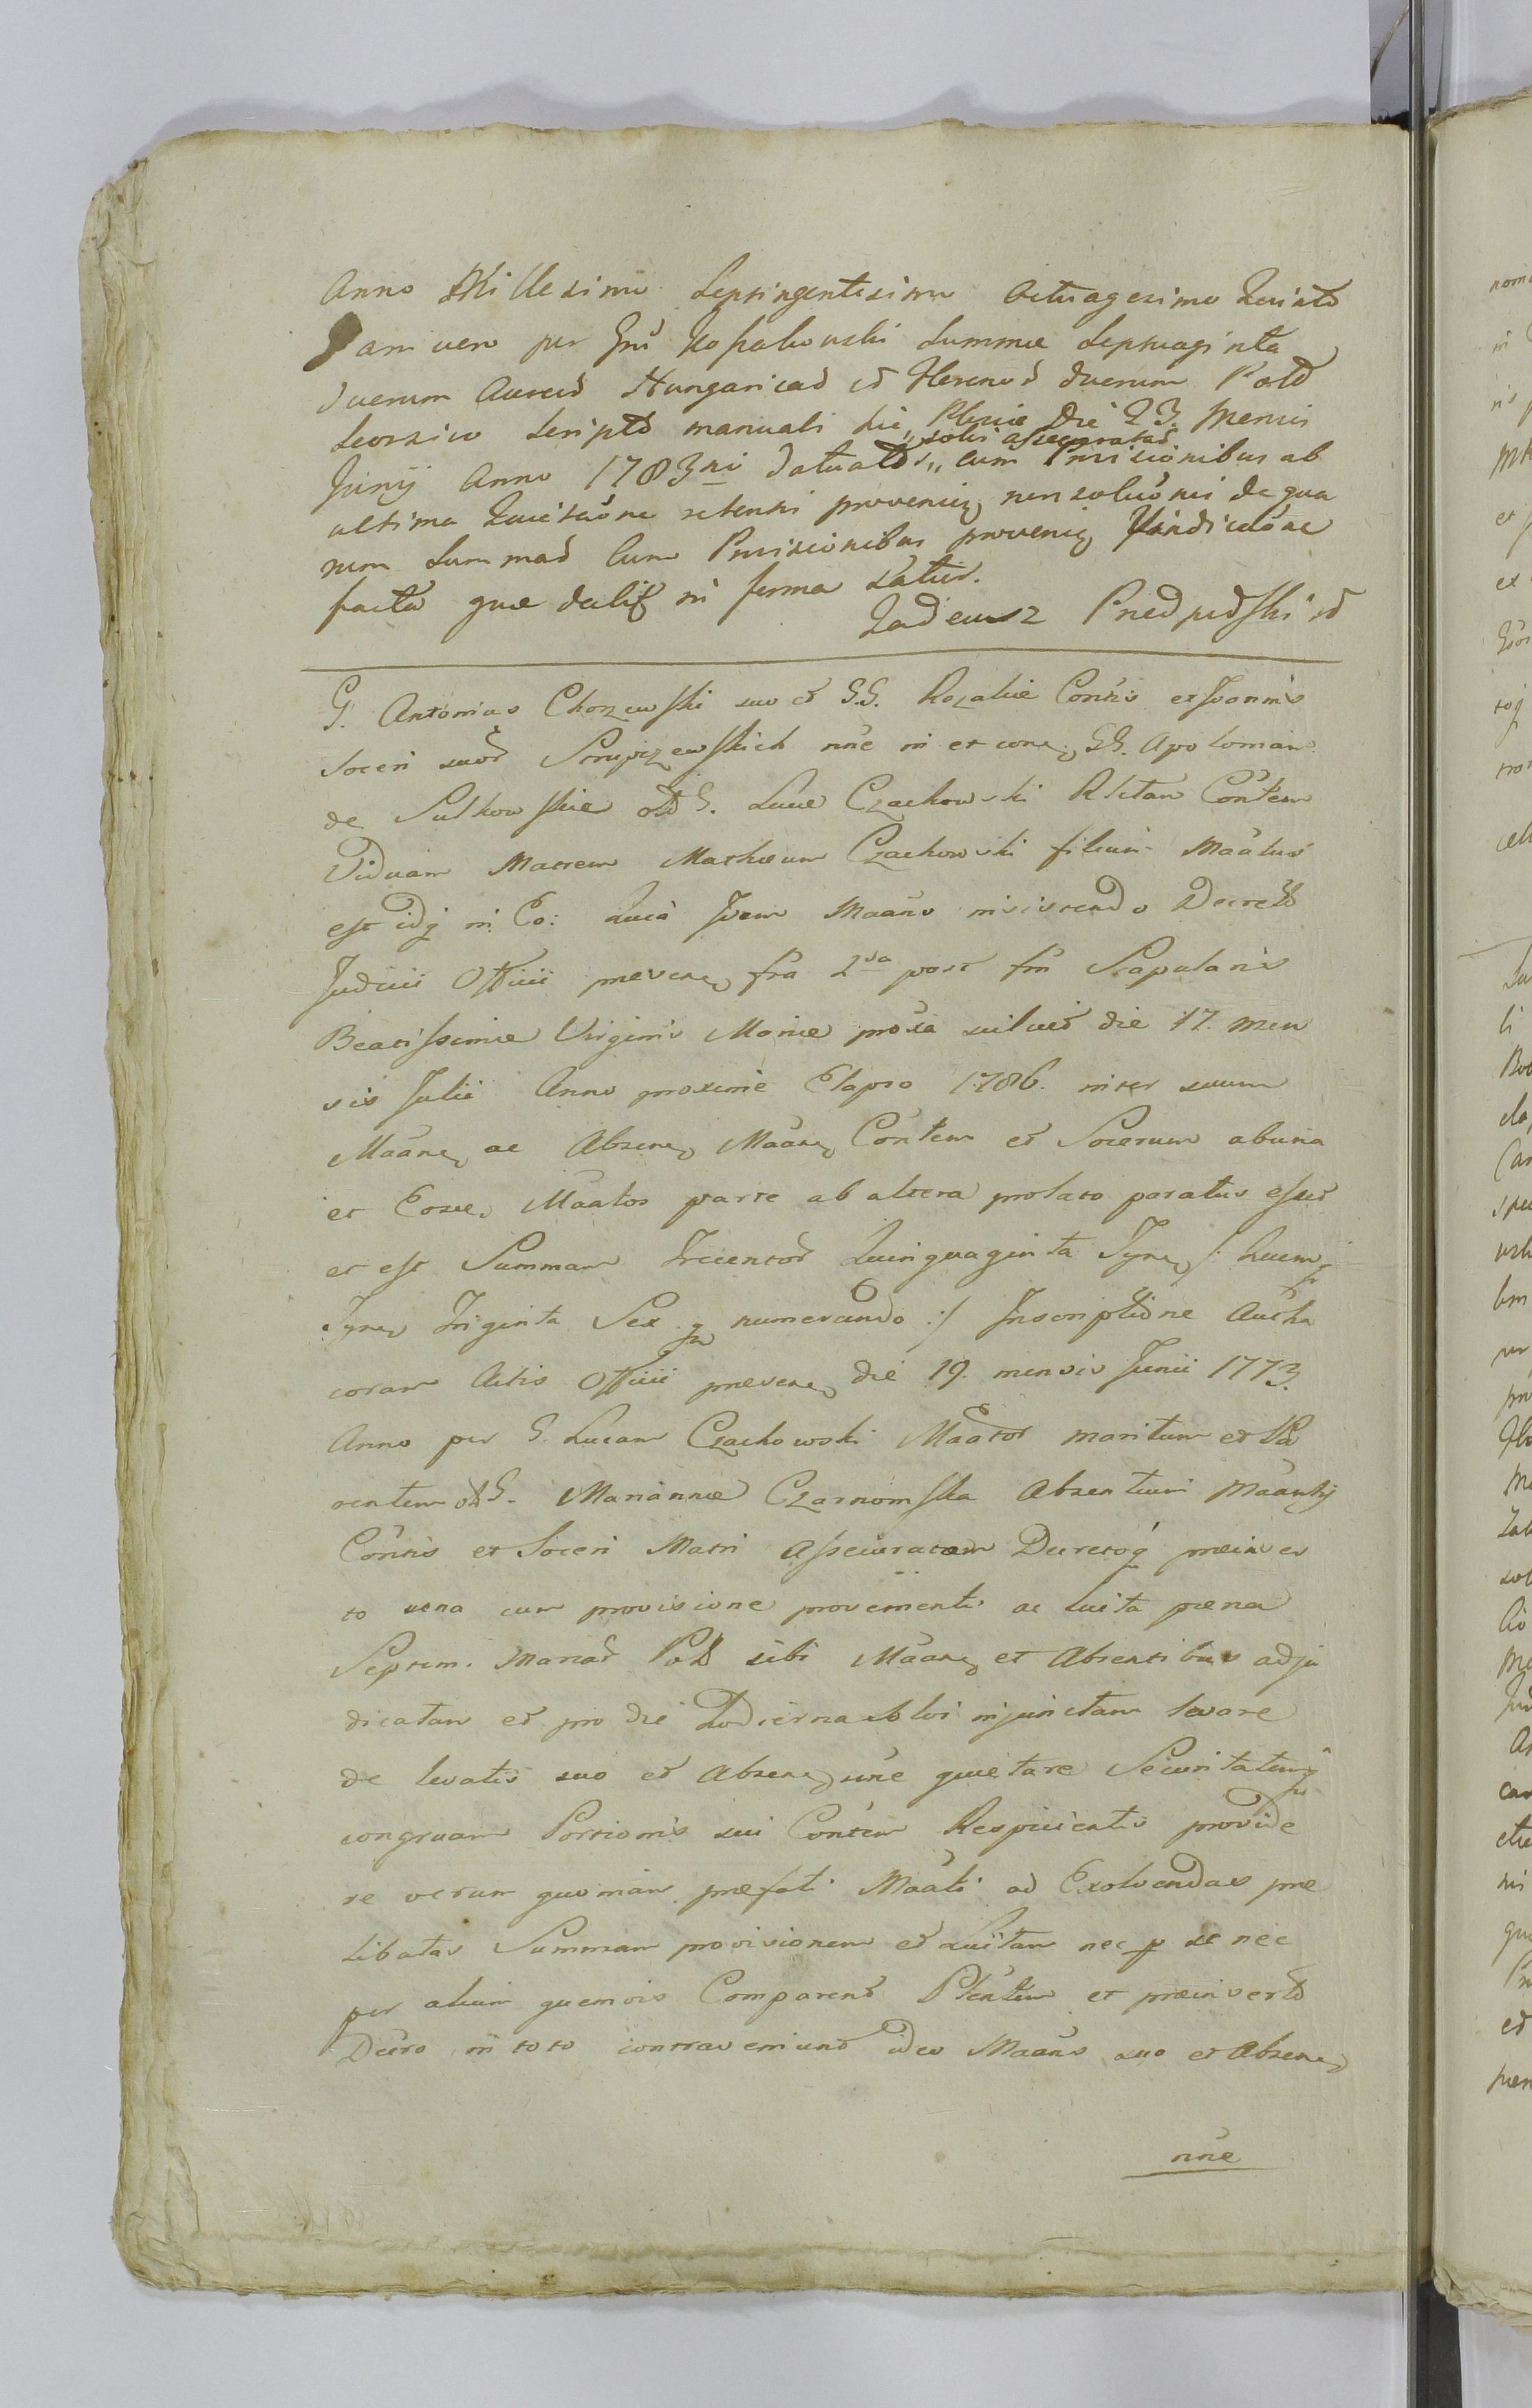 Anno Millesimo Septingentesimo Octuagesimo Quinto
Jam vero per Gnū Kopakowski Summae Septuaginta
duorum Aureoȓ Hungaricaȓ et Florenoȓ duorum Pold
Seorsivo Scripto manuali hic Plesciae Die 23. Mensis
solvi assecurataȓ
Junij Anno 1783tii datuato „ cum Provisionibus ab
ultima Quietaōne retenti provenień non solūōnis de qua
rum Summaȓ cum Provisionibus provenień Vindicaōne
facta quae dulis in forma Satis.
Tadeusz Predpeđski
G. Antonius Chorzewski suo et GG. Rozaliae Contis et Joannis
Soceri suoȓ Skrupczewskich nne in et conȓ GG. Apolloniam
de Sulkowskie olđ G. Lucae Czachowski Rlictam Contem
Viduam Matrem Mathaeum Czachowski filium Maatus
est idq̃ in Eo: Quia Idem Maans insistendo Decreto
Judicii Officii praesenȓ fra 2da post fm Scapularis
Beatissimae Virginis Mariae proxa scilicet die 17. men
sis Julii Anno proxime Elapso 1786. inter suum
Maanȓ ac Absenȓ Maanȓ Contem et Socerum ab una
et Eosdem Maatos parte ab altera prolato paratus esset
et est Summam Trecentoȓ Quinquaginta Tynȓ /: quemq̃
Tynȓ Triginta Sex gr numerando :/ Inscriptione Autha
coram Actis Officii praesenȓ die 19. mensis Junii 1773.
Anno per G. Lucam Czachowski Maatoȓ maritum et Pa
rentem olđ G. Mariannae Czarnomska Absentium Maantiū
Contis et Soceri Matri Assecuratam Decretoq̃ praeinser
to una cum provisione provenienti ac luita paena
Septem Marcaȓ Pold sibi Maanȓ et Absentibus adju
dicatam et pro die hodierna solvi injunctam levare
de levatis suo et Absenȓ nne quietare Securitatemq̃
congruam Portionis sui Contem Respicientis provide
re verum quoniam praefati Maati ad Exolvendas prae
libatas Summam provisionem et Luitam nec p̱ se nec
per alium quemvis Comparenȓ Plentem et praeinserto
Decro in toto contraveniunt ideo Maans suo et Absenȓ
nne